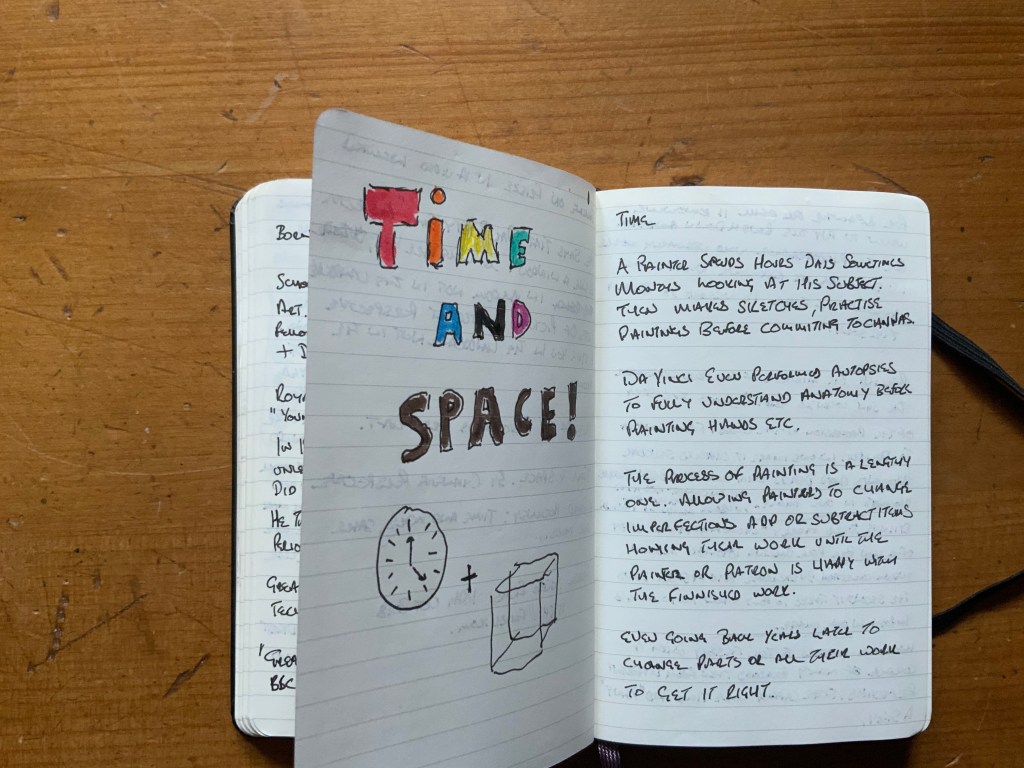 BORN
ART.
+ D
"YOUN
IN 1
DID
HE T
PERIO
GREA
TECH
'GREA
BBC
TIME
AND
SPACE!
+
TIME
A PAINTER SPENDS HOURS DAYS SOMETIMES
MONTHS LOOKING AT HIS SUBJECT.
THEN MAKES SKETCHES, PRACTISE
PAINTINGS BEFORE COMMITING TO CANVAS.
DA VINCI EVEN PERFORMED AUTOPSIES
TO FULLY UNDERSTAND ANATOMY BEFORE
PAINTING HANDS ETC.
THE PROCESS OF PAINTING IS A LENGTHY
ONE. ALLOWING PAINTERS TO CHANGE
IMPERFECTIONS ADD OR SUBTRACT ITEMS
HONING THEIR WORK UNTIL THE
PAINTER OR PATRON IS HAPPY WITH
THE FINNISHED WORK.
EVEN GOING BACK YEARS LATER TO
CHANGE PARTS OR ALL THEIR WORK
TO GET IT RIGHT.